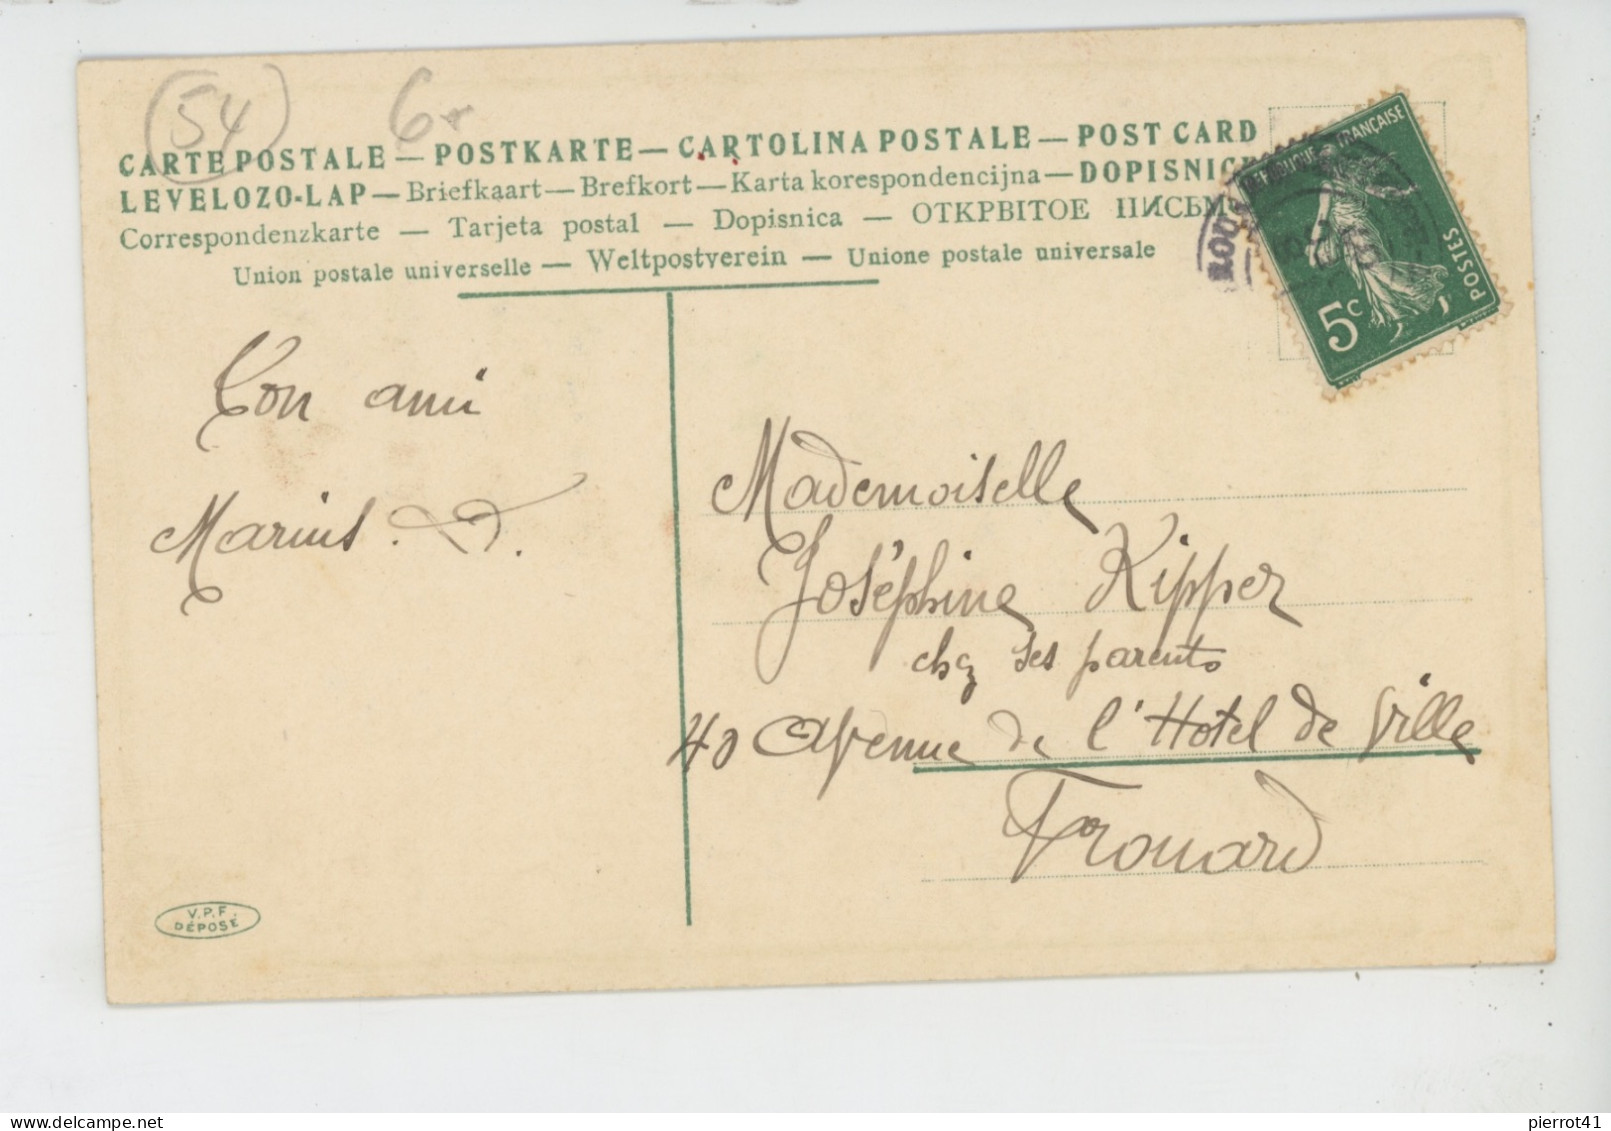 (54) 6
CARTE POSTALE — POSTKARTE — CARTOLINA POSTALE — POST CARD
LEVELOZO-LAP — Briefkaart — Brefkort — Karta korespondencijna — DOPISNICE
Correspondenzkarte — Tarjeta postal — Dopisnica — ОТКРВІТОЕ ПИСЬМ
Union postale universelle — Weltpostverein — Unione postale universale
RÉPUBLIQUE FRANÇAISE
POSTES
5c
Ton ami
Marius. D.
Mademoiselle
Joséphine Kipper
chz ses parents
40 Avenue de l'Hotel de Ville
Frouard
V.P.F.
DÉPOSÉ
pierrot41